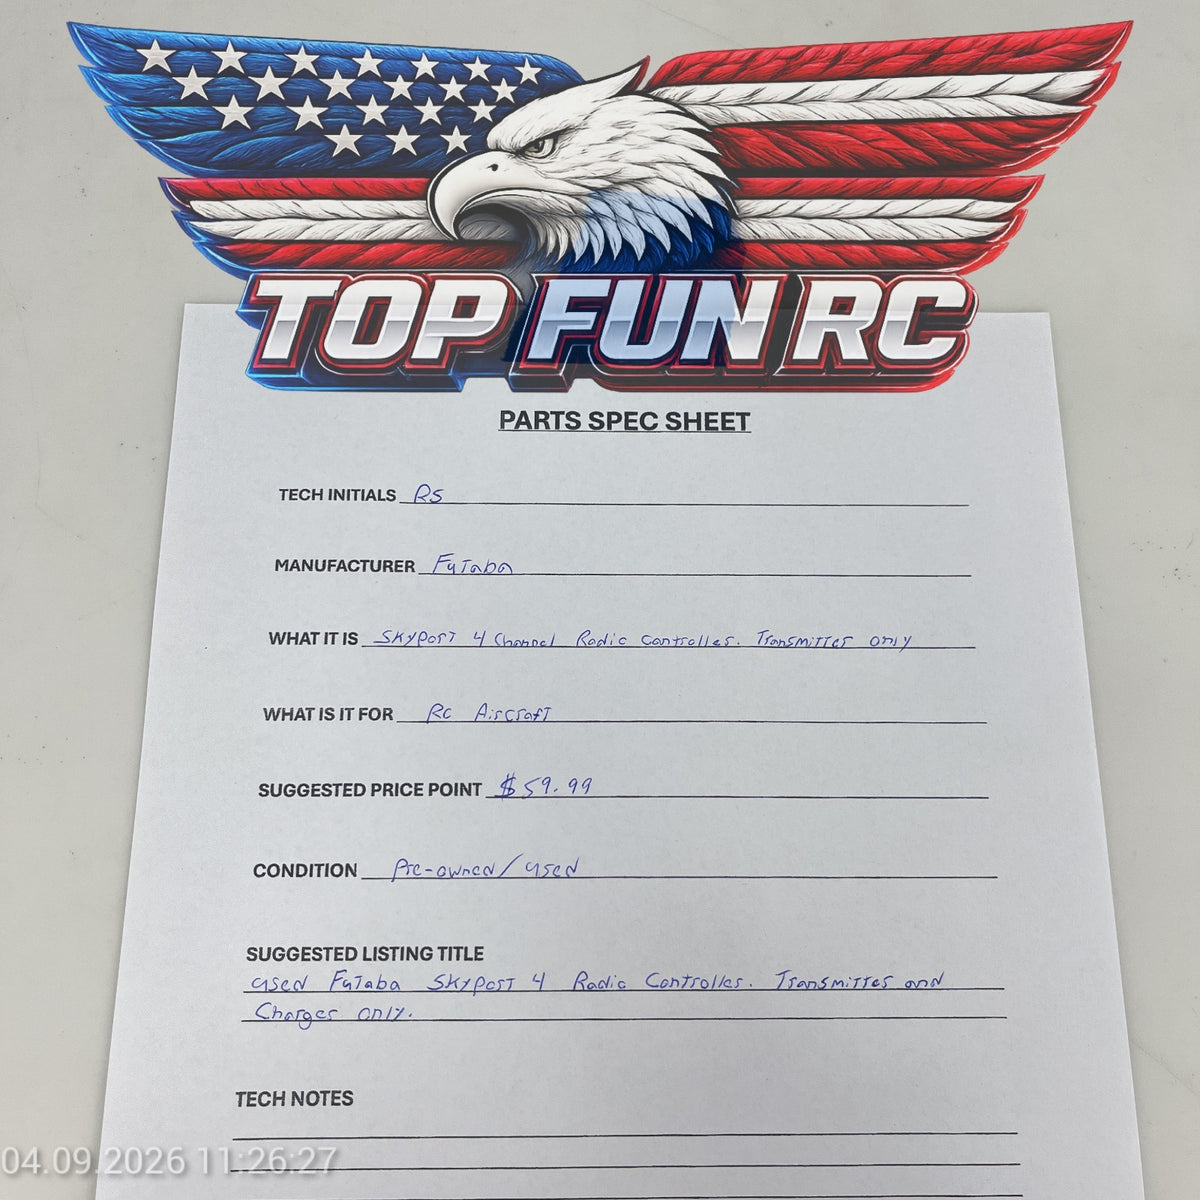 TOP FUN RC
PARTS SPEC SHEET
TECH INITIALS RS
MANUFACTURER Futaba
WHAT IT IS Skyport 4 Channel Radio Controller. Transmitter only
WHAT IS IT FOR RC Aircraft
SUGGESTED PRICE POINT $59.99
CONDITION Pre-owned/used
SUGGESTED LISTING TITLE
used Futaba Skyport 4 Radio Controller. Transmitter and
Charger only.
TECH NOTES
04.09.2026 11:26:27